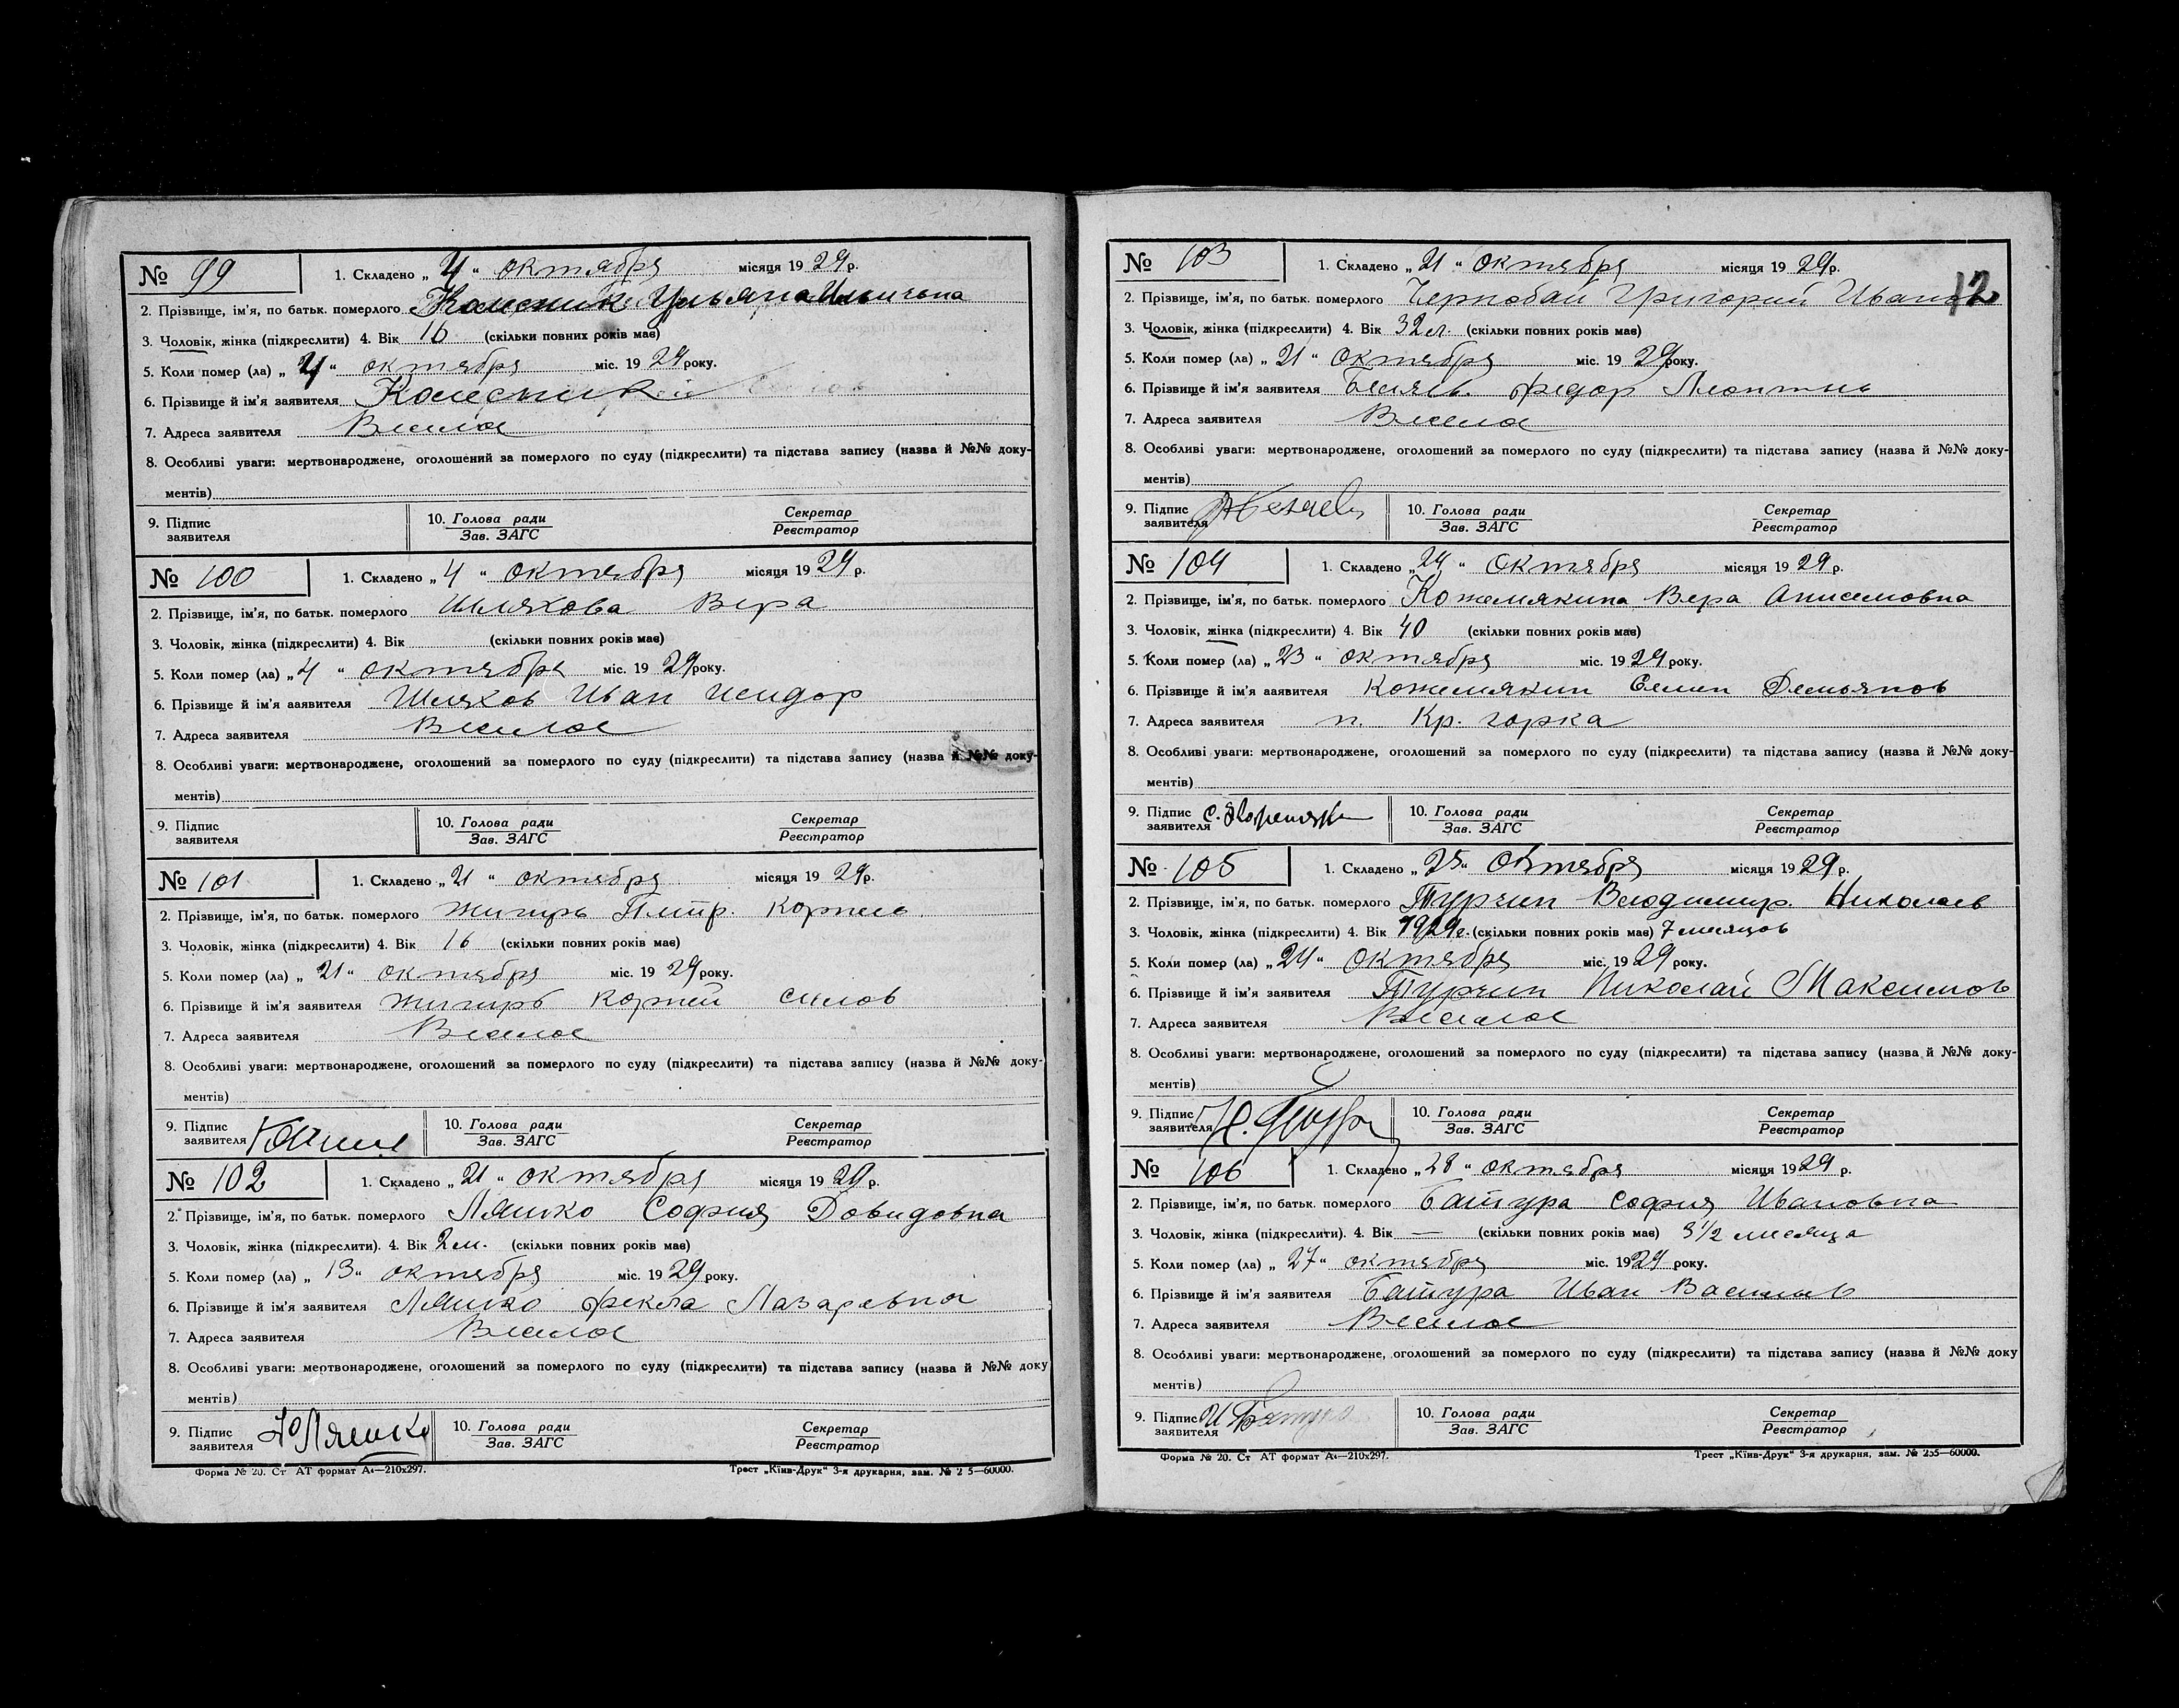 № 99 1. Складено „ 4 “ октября місяця 1929 р.
2. Прізвище, ім'я, по батьк. померлого Колесник Ульяна Ильинична
3. Чоловік, жінка (підкреслити) 4. Вік 16 (скільки повних років має)
5. Коли помер (ла) „ 4 “ октября міс. 1929 року.
6. Прізвище й ім'я заявителя Колесник
7. Адреса заявителя Веселое
8. Особливі уваги: мертвонароджене, оголошений за померлого по суду (підкреслити) та підстава запису (назва й №№ доку-
ментів)
9. Підпис заявителя 10. Голова ради Зав. ЗАГС Секретар Реєстратор
№ 100 1. Складено „ 4 “ октября місяця 1929 р.
2. Прізвище, ім'я, по батьк. померлого Шляхова Вера
3. Чоловік, жінка (підкреслити) 4. Вік (скільки повних років має)
5. Коли помер (ла) „ 4 “ октября міс. 1929 року.
6. Прізвище й ім'я ааявителя Шляхов Иван Исидор
7. Адреса заявителя Веселое
8. Особливі уваги: мертвонароджене, оголошений за померлого по суду (підкреслити) та підстава запису (назва й №№ доку-
ментів)
9. Підпис заявителя 10. Голова ради Зав. ЗАГС Секретар Реєстратор
№ 101 1. Складено „ 21 “ октября місяця 1929 р.
2. Прізвище, ім'я, по батьк. померлого Жигирь Петр. Корнеев.
3. Чоловік, жінка (підкреслити) 4. Вік 16 (скільки повних років має)
5. Коли помер (ла) „ 21 “ октября міс. 1929 року.
6. Прізвище й ім'я заявителя Жигирь Корней Силов
7. Адреса заявителя Веселое
8. Особливі уваги: мертвонароджене, оголошений за померлого по суду (підкреслити) та підстава запису (назва й №№ доку-
ментів)
9. Підпис заявителя 10. Голова ради Зав. ЗАГС Секретар Реєстратор
№ 102 1. Складено „ 21 “ октября місяця 1929 р.
2. Прізвище, ім'я, по батьк. померлого Ляшко София Довидовна
3. Чоловік, жінка (підкреслити). 4. Вік 2 м. (скільки повних років має)
5. Коли помер (ла) „ 13 “ октября міс. 1929 року.
6. Прізвище й ім'я заявителя Ляшко Фекла Лазаревна
7. Адреса заявителя Веселое
8. Особливі уваги: мертвонароджене, оголошений за померлого по суду (підкреслити) та підстава запису (назва й №№ доку
ментів)
9. Підпис заявителя Ляшко 10. Голова ради Зав. ЗАГС Секретар Реєстратор
Форма № 20. Ст АТ формат А4—210х297. Трест „Київ-Друк“ 3-я друкарня, зам. № 2 5—60000.
12
№ 103 1. Складено „ 21 “ октября місяця 1929 р.
2. Прізвище, ім'я, по батьк. померлого Чернобай Григорий Иванов
3. Чоловік, жінка (підкреслити) 4. Вік 32 л. (скільки повних років має)
5. Коли помер (ла) „ 21 “ октября міс. 1929 року.
6. Прізвище й ім'я заявителя Беляев. Федор Леонтьев
7. Адреса заявителя Веселое
8. Особливі уваги: мертвонароджене, оголошений за померлого по суду (підкреслити) та підстава запису (назва й №№ доку-
ментів)
9. Підпис заявителя 10. Голова ради Зав. ЗАГС Секретар Реєстратор
№ 104 1. Складено „ 24 “ октября місяця 1929 р.
2. Прізвище, ім'я, по батьк. померлого Кожемякина Вера Анисемовна
3. Чоловік, жінка (підкреслити) 4. Вік 40 (скільки повних років має)
5. Коли помер (ла) „ 23 “ октября міс. 1929 року.
6. Прізвище й ім'я ааявителя Кожемякин Семен Демьянов
7. Адреса заявителя п. Кр. горка
8. Особливі уваги: мертвонароджене, оголошений за померлого по суду (підкреслити) та підстава запису (назва й №№ доку-
ментів)
9. Підпис заявителя 10. Голова ради Зав. ЗАГС Секретар Реєстратор
№ 105 1. Складено „ 25 “ октября місяця 1929 р.
2. Прізвище, ім'я, по батьк. померлого Турчин Володимир. Николаев
3. Чоловік, жінка (підкреслити) 4. Вік 1929 г. (скільки повних років має) 7 месяцов
5. Коли помер (ла) „ 24 “ октября міс. 1929 року.
6. Прізвище й ім'я заявителя Турчин Николай Максимов
7. Адреса заявителя Веселое
8. Особливі уваги: мертвонароджене, оголошений за померлого по суду (підкреслити) та підстава запису (назва й №№ доку-
ментів)
9. Підпис заявителя 10. Голова ради Зав. ЗАГС Секретар Реєстратор
№ 106 1. Складено „ 28 “ октября місяця 1929 р.
2. Прізвище, ім'я, по батьк. померлого Батура София Ивановна
3. Чоловік, жінка (підкреслити). 4. Вік — (скільки повних років має) 3 1/2 месяца
5. Коли помер (ла) „ 27 “ октября міс. 1929 року.
6. Прізвище й ім'я заявителя Батура Иван Васильев
7. Адреса заявителя Веселое
8. Особливі уваги: мертвонароджене, оголошений за померлого по суду (підкреслити) та підстава запису (назва й №№ доку
ментів)
9. Підпис заявителя И Батура 10. Голова ради Зав. ЗАГС Секретар Реєстратор
Форма № 20. Ст АТ формат А4—210х297. Трест „Київ-Друк“ 3-я друкарня, зам. № 255—60000.